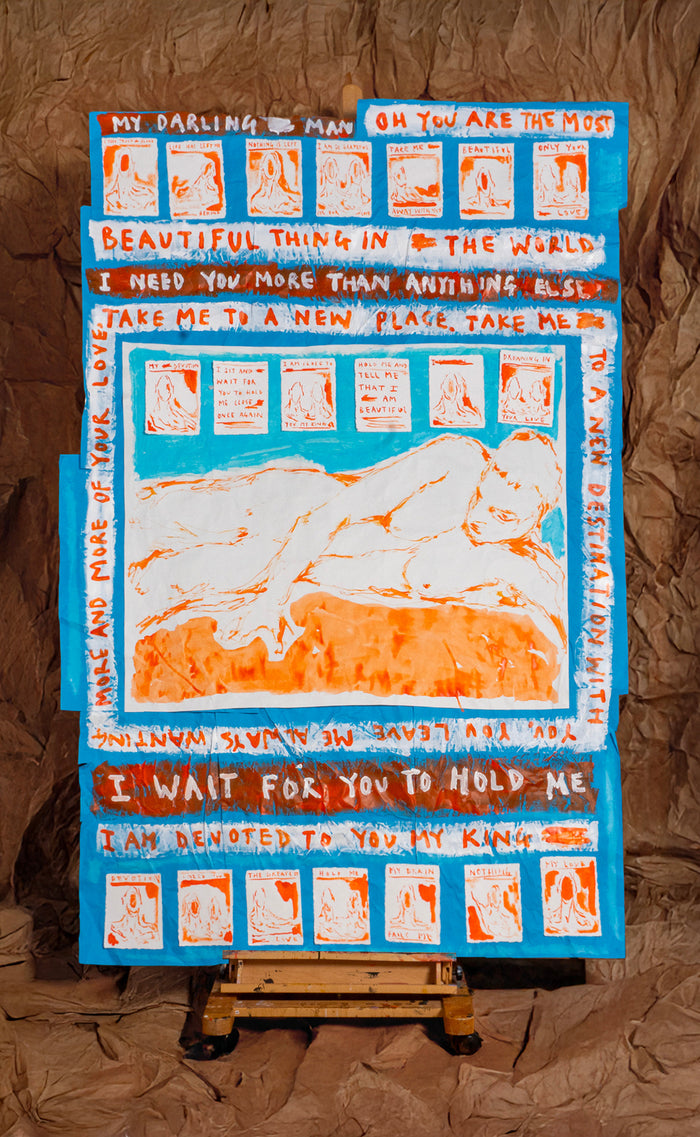 MY DARLING MAN
OH YOU ARE THE MOST
LIFE HAS LEFT ME
NOTHING IS LEFT
I AM SO GRATEFUL
TAKE ME
AWAY WITH YOU
BEAUTIFUL
ONLY YOUR
LOVE
BEAUTIFUL THING IN THE WORLD
I NEED YOU MORE THAN ANYTHING ELSE
TAKE ME TO A NEW PLACE. TAKE ME
TO A NEW DESTINATION WITH
YOU. YOU LEAVE ME ALWAYS WANTING
MORE AND MORE OF YOUR LOVE.
MY DEVOTION
I SIT AND
WAIT FOR
YOU TO HOLD
ME CLOSE
ONCE AGAIN
I AM CLOSE TO
YOU MY KING
HOLD ME AND
TELL ME
THAT I
AM
BEAUTIFUL
DREAMING IN
YOUR LOVE
I WAIT FOR YOU TO HOLD ME
I AM DEVOTED TO YOU MY KING
DEVOTION
THE GREATEST
LOVE
HOLD ME
MY BRAIN
NOTHING
MY LOVE